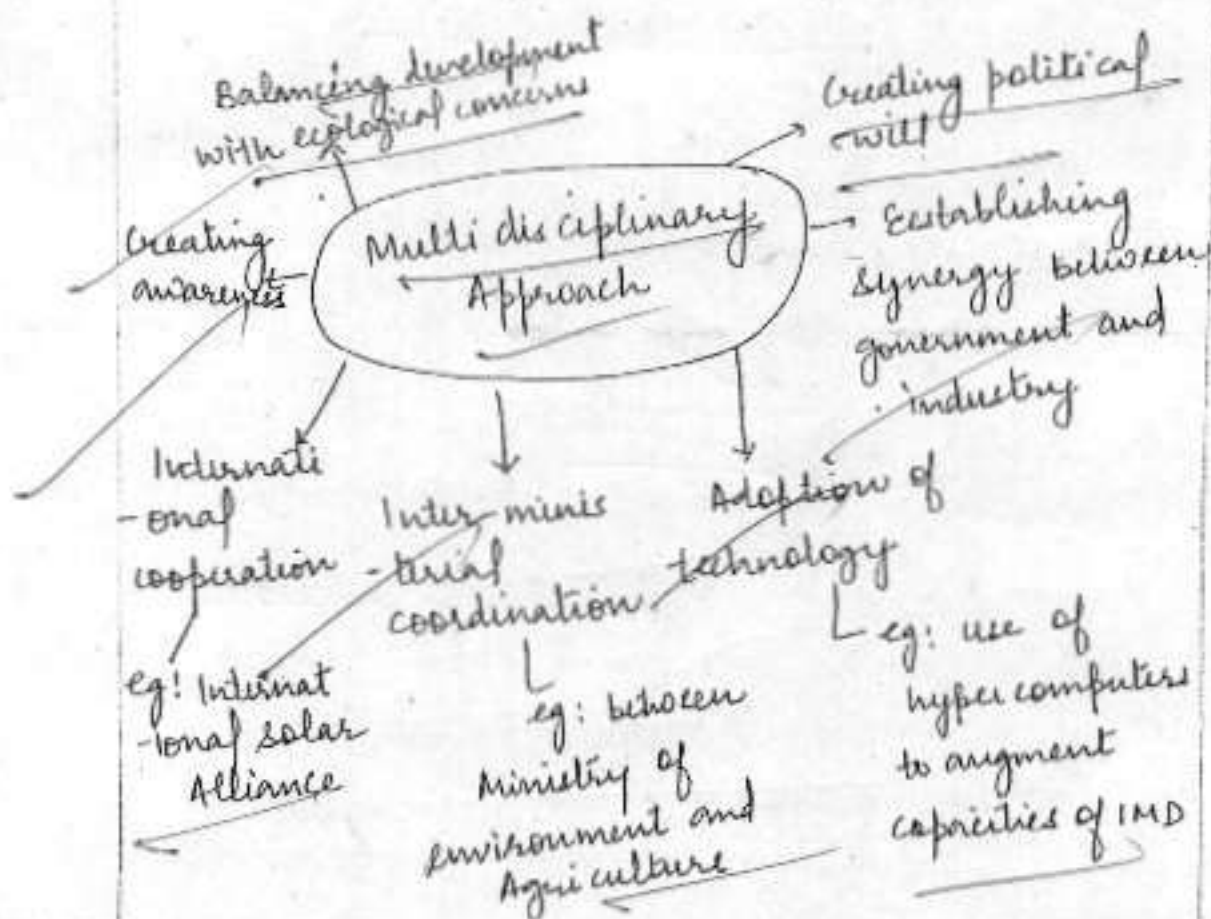 Balancing development
with ecological concerns
Creating political
will
Multi disciplinary
Approach
Creating
awareness
Establishing
synergy between
government and
industry
Internati
-onal
cooperation
eg: Internat
-ional solar
Alliance
Inter-minis
-terial
coordination
eg: between
Ministry of
environment and
Agriculture
Adoption of
technology
eg: use of
hyper computers
to augment
capacities of IMD